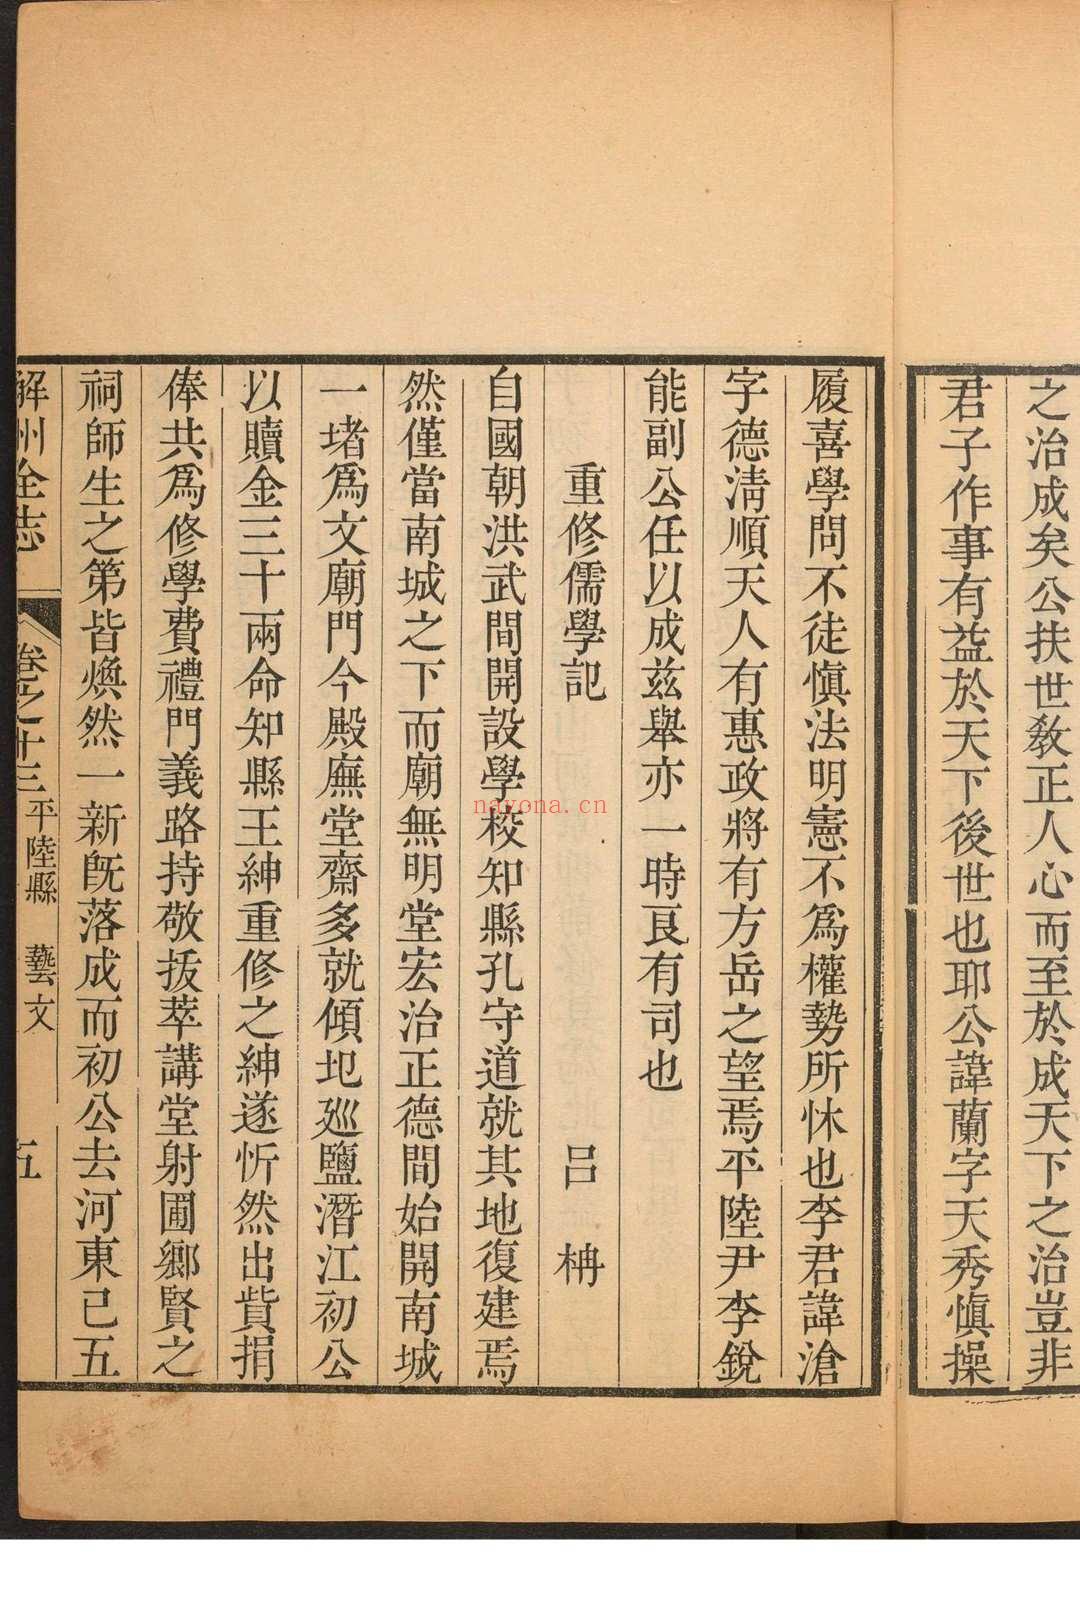 之治成矣公扶世敎正人心而至於成天下之治豈非
君子作事有益於天下後世也耶公諱蘭字天秀愼操
履喜學問不徒愼法明憲不爲權勢所怵也李君諱滄
字德淸順天人有惠政將有方岳之望焉平陸尹李銳
能副公任以成兹舉亦一時良有司也
重修儒學記
呂柟
自國朝洪武間開設學校知縣孔守道就其地復建焉
然僅當南城之下而廟無明堂宏治正德間始開南城
一堵爲文廟門今殿廡堂齋多就傾圮廵鹽潛江初公
以贖金三十兩命知縣王紳重修之紳遂忻然出貲捐
俸共爲修學費禮門義路持敬拔萃講堂射圃鄉賢之
祠師生之第皆煥然一新旣落成而初公去河東已五
解州全志
卷之十三
平陸縣
藝文
五
nayona.cn